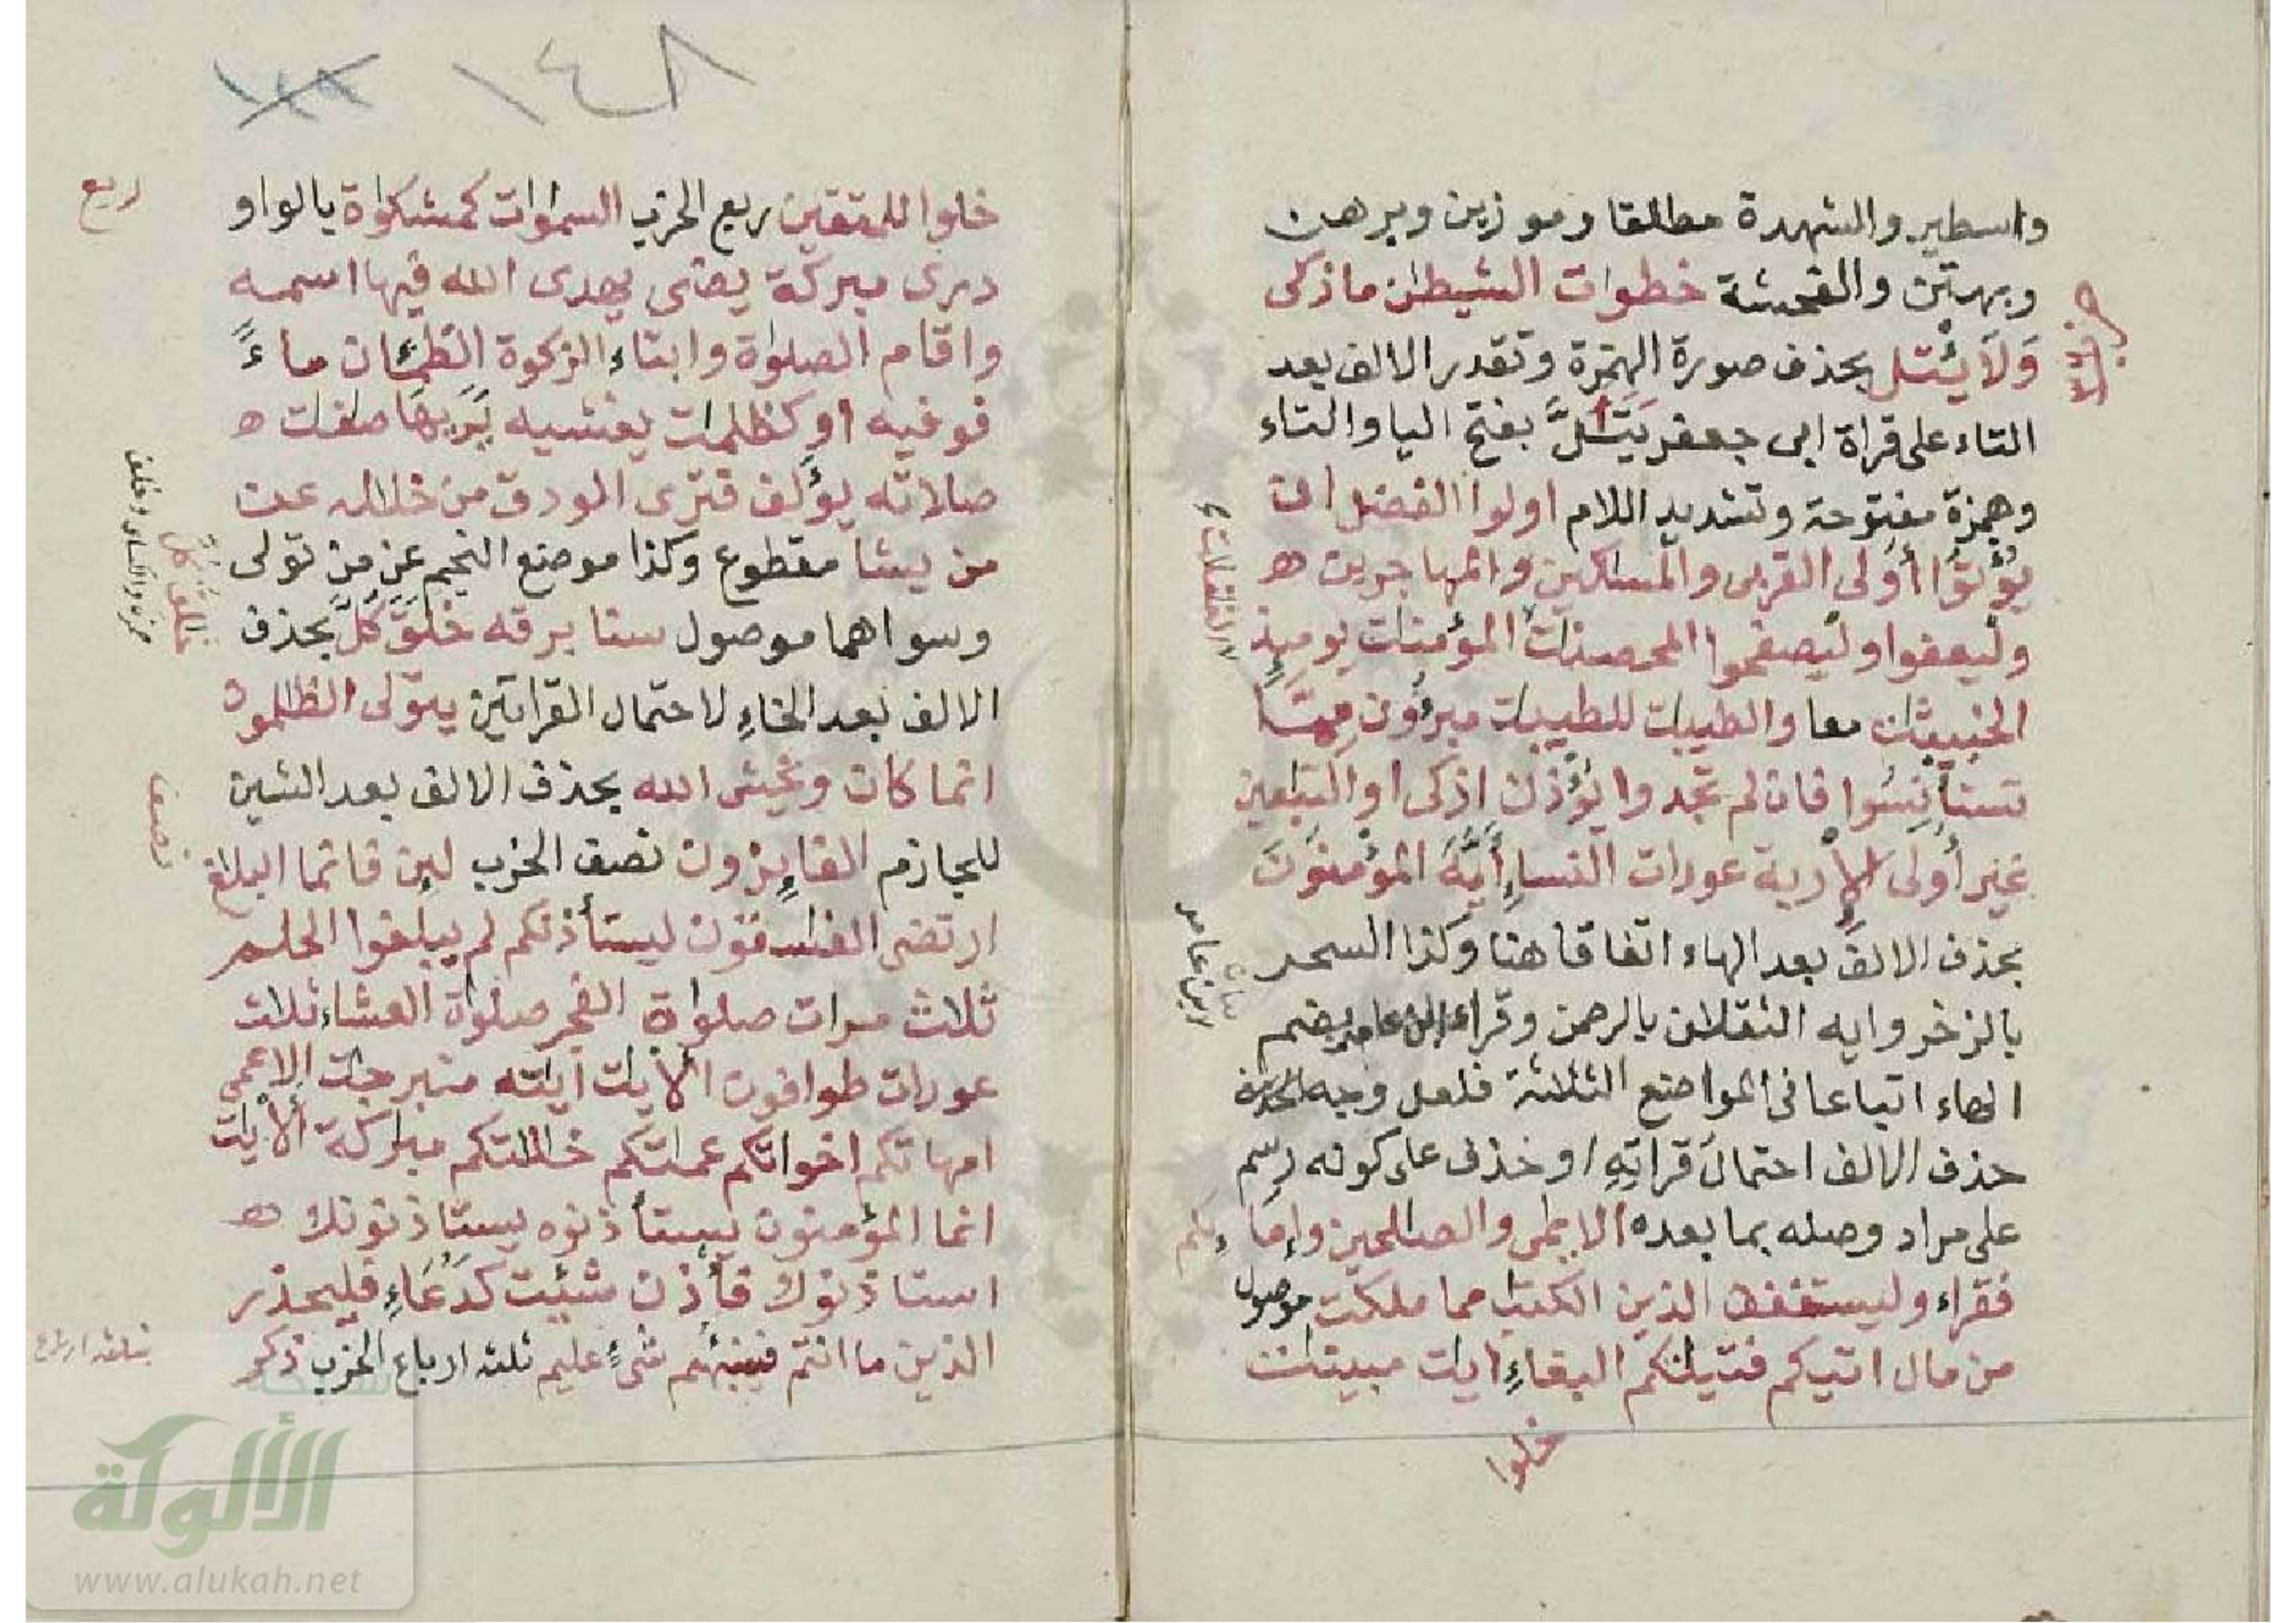 واسطير والشهدة مطلقا وموزين وبرهن
وبهتن والفحشة خطوات الشيطن ما زكى
وَلَا يَأْتَلِ بحذف صورة الهمزة وتقدر الالف بعد
التاء على قراة ابى جعفر يَتَأَلَّ بفتح اليا والتاء
وهمزة مفتوحة وتشديد اللام اولوا الفضل ان
يؤتوا أولى القربى والمساكين والمهاجرين هـ
وليعفوا وليصفحوا المحصنات المؤمنات يوميذ
الخبيثات معا والطيبات للطيبات مبرؤن مما
تستأنسوا فان لم تجدوا يؤذن ازكى او التبعين
غير أولى الأربة عورات النساء أيه المؤمنون
بحذف الالف بعد الهاء اتفاقا هنا وكذا السحر
بالزخر وايه الثقلان بالرحمن وقراء ابن عامر بضم
الهاء اتباعا فى المواضع الثلثة فلعل وجه
حذف الالف احتمال قراته او حذف على كونه رسم
على مراد وصله بما بعده الايمى والصلحين وإماءِكم
فقراء وليستعفف الذين الكتب مما ملكت موصول
من مال اتيكم فتيتكم البغاءِ ايات مبينت
خلوا
ابن عامر
١٤٨
خلوا للمتقين ربع الحزب السموات كمشكواة بالواو
ربع
درى مبركة يضى يهدى الله فيها اسمه
واقام الصلواة وايتاء الزكوة الظمان ماءً
فوفيه او كظلمات يغشيه يَرَيهَا صفت هـ
صلاته يؤلف فترى الودق من خلاله عن
من يشا مقطوع وكذا موضع النجم عن من تولى
وسواهما موصول سنا برقه خلق كل بحذف
خالق كل
حمزه والكساى وخلف
الالف بعد الخاءِ لاحتمال القراتين يتولى الظلمون
انما كان ويخش الله بحذف الالف بعد الشين
للجازم الفايزون نصف الحزب لين فانما البلاغ
نصف
ارتضى الفسقون ليستأذنكم لم يبلغوا الحلم
ثلاث مرات صلواة الفجر صلواة العشاء ثلاث
عورات طوافون الأيات آيته متبرجات الاعمى
امهاتكم اخواتكم عماتكم خالتكم مباركة الأيات
انما المؤمنون يستأذنوه يستاذنونك هـ
استاذنوك فأذن شئت كدعاءِ فليحذر
الذين ما انتم فينبئهم شىءٍ عليم ثلثه ارباع الحزب ذكر
ثلثه ارباع
الألوكة
www.alukah.net